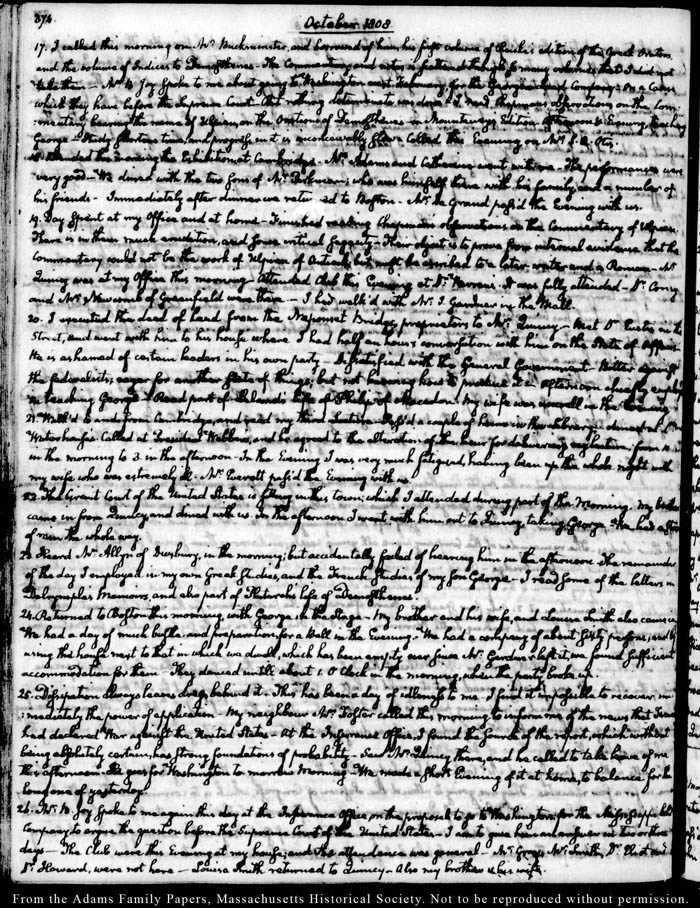 374.
October 1808
17. I called this morning on Mr. Buckminster, and borrowed of him, his first volume of Reiske's edition of the Greek Orators,
and the volume of Indices to Demosthenes. The Commentary and notes
take them — Mr. B. Joy Spoke to me about going to Washington next February, for the Georgia Land Company's, in a Cause
which they have before the Supreme Court. But nothing determinate was done. I read Chapman's observations on the Com-
-mentary bearing the name of Ulpian, on the Orations of Demosthenes in Mounteney's Edition. Afternoon & Evening, teaching
George — Study shortens time, and progress in it is inconceivably slow. Called this Evening on Mrs.
18. Attended this morning the Exhibition at Cambridge. Mrs. Adams and Catherine went with me. The performances were
very good — We dined with the two Sons of Mr. who was himself there with his family, and a number of
his friends — Immediately after dinner we returned to Boston — Mr. Le Grand pass'd the Evening with us.
19. Day Spent at my Office and at home — Finished reading Chapman's observations on the Commentary of Ulpian.
There is in them much erudition, and some critical Sagacity — Their object is to prove from internal evidence that the
Commentary could not be the work of Ulpian of but must be ascribed to a later writer and a Roman — Mr.
Quincy was at my Office this morning. Attended Club this Evening at Dr. Warren's. It was fully attended — Dr.
and Mr. Newcomb of Greenfield were there — I had walk'd with Mr. J. Gardner in the Mall.
20. I executed the deed of land from the Naponset Bridge proprietors to Mr. Quincy — Met Dr. Eustis in the
Street, and went with him to his house where I had half an hour's conversation with him on the State of Affairs.
He is ashamed of certain leaders in his own party — Dissatisfied with the General Government — Bitter against
the federalists; eager for another State of things, but not knowing how to produce it — Afternoon chiefly employ'd
in teaching George — Read part of Leland's life of Philip of Macedon. My wife was unwell in the Evening.
21. Walk'd to and from Cambridge, and read my third Lecture. Pass'd a couple of hours in the library; dined at Dr.
Waterhouse's. Called at President Webber's, and he agreed to the alteration of the hour for delivering my lecture; from 10
in the morning to 3. in the afternoon. In the Evening I was very much fatigued, having been up the whole night with
my wife who was extremely ill. Mr. Everett pass'd the Evening with us.
22. The Circuit Court of the United States is sitting in this town; which I attended during part of the Morning. My brother
came in from Quincy and dined with us. In the afternoon I went with him out to Quincy, taking George. We had a
of rain the whole way.
23. Heard Mr. Allyn of Duxbury, in the morning; but accidentally failed of hearing him in the afternoon. The remainder
of the day I employed in my own Greek Studies, and the French Studies of my Son George — I read Some of the letters in
Memoirs, and also part of Plutarch's life of Demosthenes.
24. Returned to Boston this morning, with George in the Stage. My brother and his wife, and Louisa Smith also came in.
We had a day of much bustle and preparation, for a Ball in the Evening. We had a company of about Sixty persons; and by
using the house next to that in which we dwell, which has been empty ever since Mr. Gardner left it, we found Sufficient
accommodation for them — They danced untill about 1. O'Clock in the morning, when the party broke up.
25. Dissipation always leaves dregs behind it. This has been a day of idleness to me. I find it impossible to recover im-
:mediately the power of application — My neighbour Mr. Foster called this morning to inform me of the news that France
had declared War against the United States — At the Insurance Office I found the Source of the report, which without
being absolutely certain, has strong foundations of probability — Saw Mr. Quincy there, and he called to take leave of me
this afternoon. He goes for Washington to morrow Morning. We made a Short Evening of it at home, to balance for the
long one of yesterday.
26. Mr. B. Joy Spoke to me again this day at the Insurance Office on the proposal to go to Washington for the Mississippi land
Company to argue the question before the Supreme Court of the United States — I am to give him an answer in two or three
days — The Club were this Evening at my house, and the attendance was general — Mr. Gray, Mr. Smith, Dr. Eliot and
Dr. Howard, were not here — Louisa Smith returned to Quincy — Also my brother & his wife.
From the Adams Family Papers, Massachusetts Historical Society. Not to be reproduced without permission.